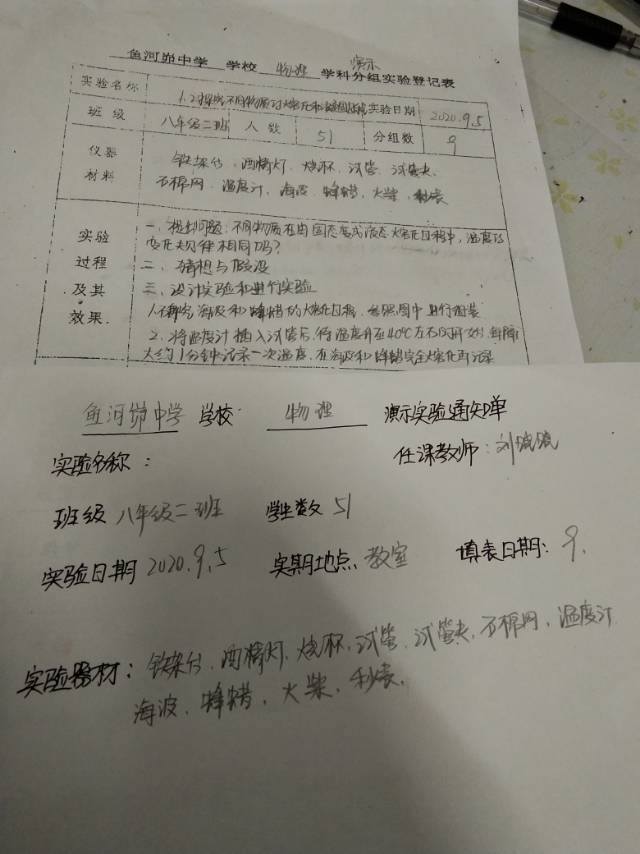 鱼河峁中学 学校 物理 演示 学科分组实验登记表
实验名称 1.2探究不同物质 熔化和 实验日期 2020.9.5
班级 八年级二班 人数 51 分组数 9
仪器材料 铁架台、酒精灯、烧杯、试管、试管夹、
石棉网、温度计、海波、蜂蜡、火柴、秒表
实验过程及其效果
一、提出问题:不同物质在由固态变成液态熔化过程中,温度的
变化规律相同吗?
二、猜想与假设
三、设计实验和进行实验
1.探究海波和蜂蜡的熔化过程,参照图中进行组装
2.将温度计插入试管后,待温度升至40℃左右时开始,每隔
大约1分钟记录一次温度,在海波和蜂蜡完全熔化再记录
鱼河峁中学 学校 物理 演示实验通知单
实验名称: 任课教师:刘
班级 八年级二班 学生数 51
实验日期 2020.9.5 实期地点、教室 填表日期:9.
实验器材:铁架台、酒精灯、烧杯、试管、试管夹、石棉网、温度计
海波、蜂蜡、火柴、秒表、